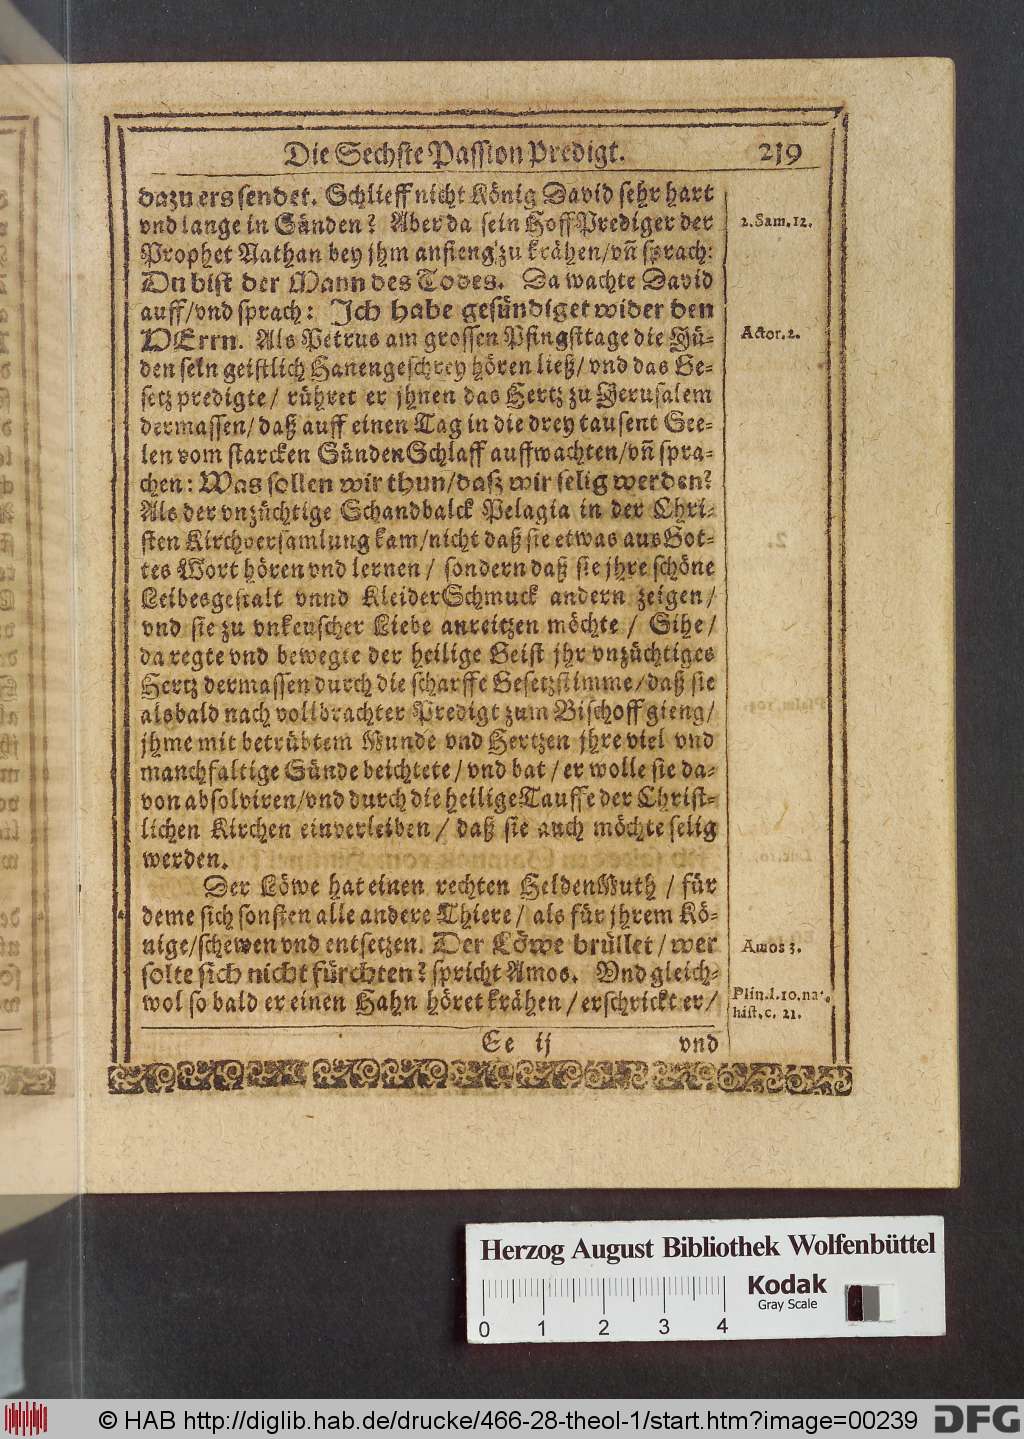 Die Sechste Passion Predigt. 219
dazu ers sendet. Schlieff nicht König David sehr hart
vnd lange in Sünden? Aber da sein HoffPrediger der
Prophet Nathan bey jhm anfieng zu krähen/vñ sprach:
Du bist der Mann des Todes. Da wachte David
auff/vnd sprach: Ich habe gesündiget wider den
HErrn. Als Petrus am grossen Pfingsttage die Jü-
den sein geistlich Hanengeschrey hören ließ/ vnd das Ge-
setz predigte/ rühret er jhnen das Hertz zu Jerusalem
dermassen/ daß auff einen Tag in die drey tausent See-
len vom starcken SündenSchlaff auffwachten/vñ spra-
chen: Was sollen wir thun/daß wir selig werden?
Als der vnzüchtige Schandbalck Pelagia in der Chri-
sten Kirchversamlung kam/nicht daß sie etwas aus Got-
tes Wort hören vnd lernen/ sondern daß sie jhre schöne
Leibesgestalt vnnd KleiderSchmuck andern zeigen/
vnd sie zu vnkeuscher Liebe anreitzen möchte/ Sihe/
da regte vnd bewegte der heilige Geist jhr vnzüchtiges
Hertz dermassen durch die scharffe Gesetzstimme/daß sie
alsbald nach vollbrachter Predigt zum Bischoff gieng/
jhme mit betrübtem Munde vnd Hertzen jhre viel vnd
manchfaltige Sünde beichtete/vnd bat/er wolle sie da-
von absolviren/vnd durch die heilige Tauffe der Christ-
lichen Kirchen einverleiben/ daß sie auch möchte selig
werden.
Der Löwe hat einen rechten HeldenMuth/ für
deme sich sonsten alle andere Thiere/ als für jhrem Kö-
nige/schewen vnd entsetzen. Der Löwe brüllet/ wer
solte sich nicht fürchten? spricht Amos. Vnd gleich-
wol so bald er einen Hahn höret krähen/erschrickt er/
Ee ij vnd
2. Sam. 12.
Actor. 2.
Amos 3.
Plin. l. 10. nat.
hist. c. 21.
Herzog August Bibliothek Wolfenbüttel
Kodak
Gray Scale
0 1 2 3 4
© HAB http://diglib.hab.de/drucke/466-28-theol-1/start.htm?image=00239
DFG